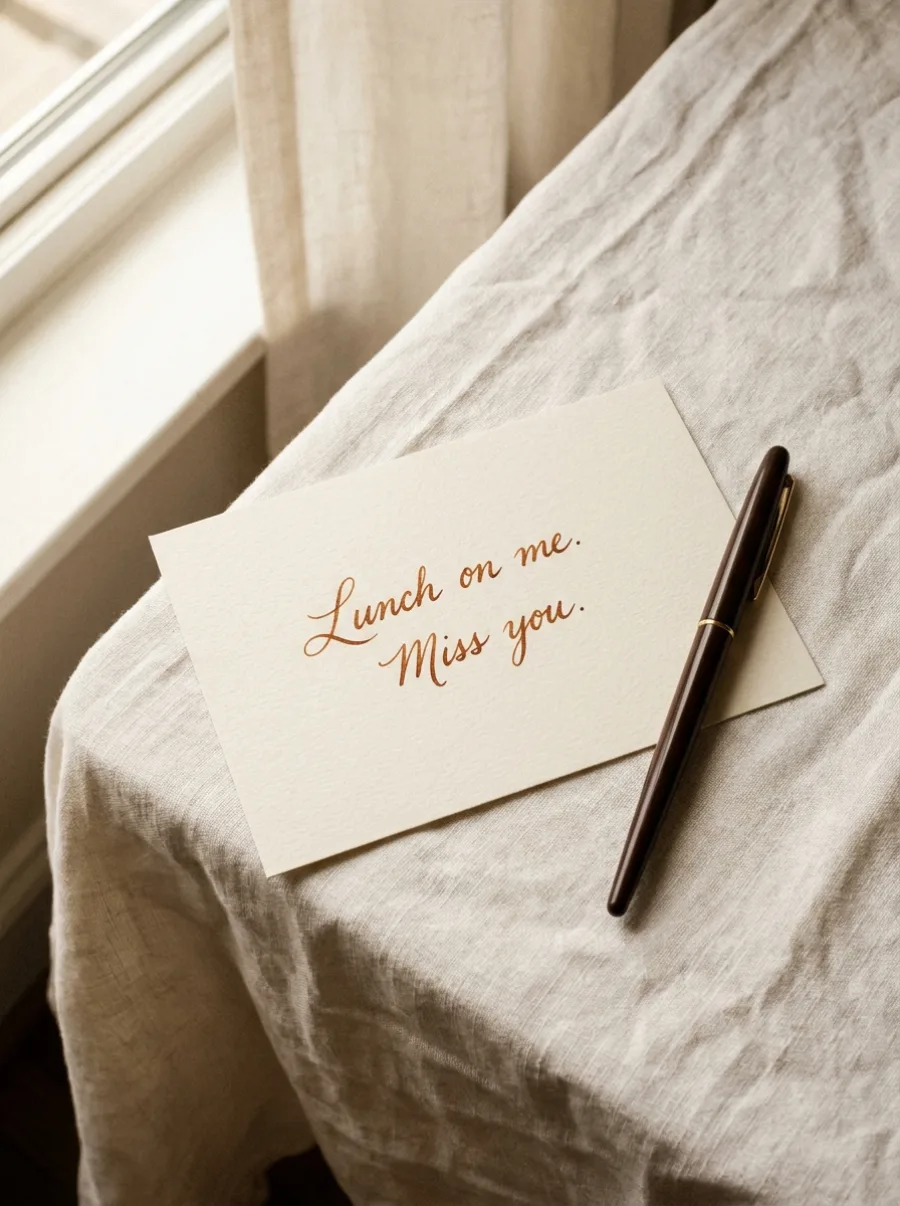 Lunch on me.
Miss you.